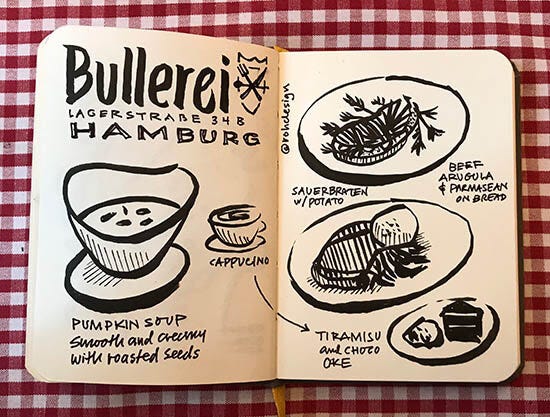 Bullerei
LAGERSTRAßE 34B
HAMBURG
CAPPUCINO
PUMPKIN SOUP
smooth and creamy
with roasted seeds
@rohdesign
SAUERBRATEN
W/POTATO
BEEF
ARUGULA
& PARMASEAN
ON BREAD
TIRAMISU
and CHOCO
CAKE